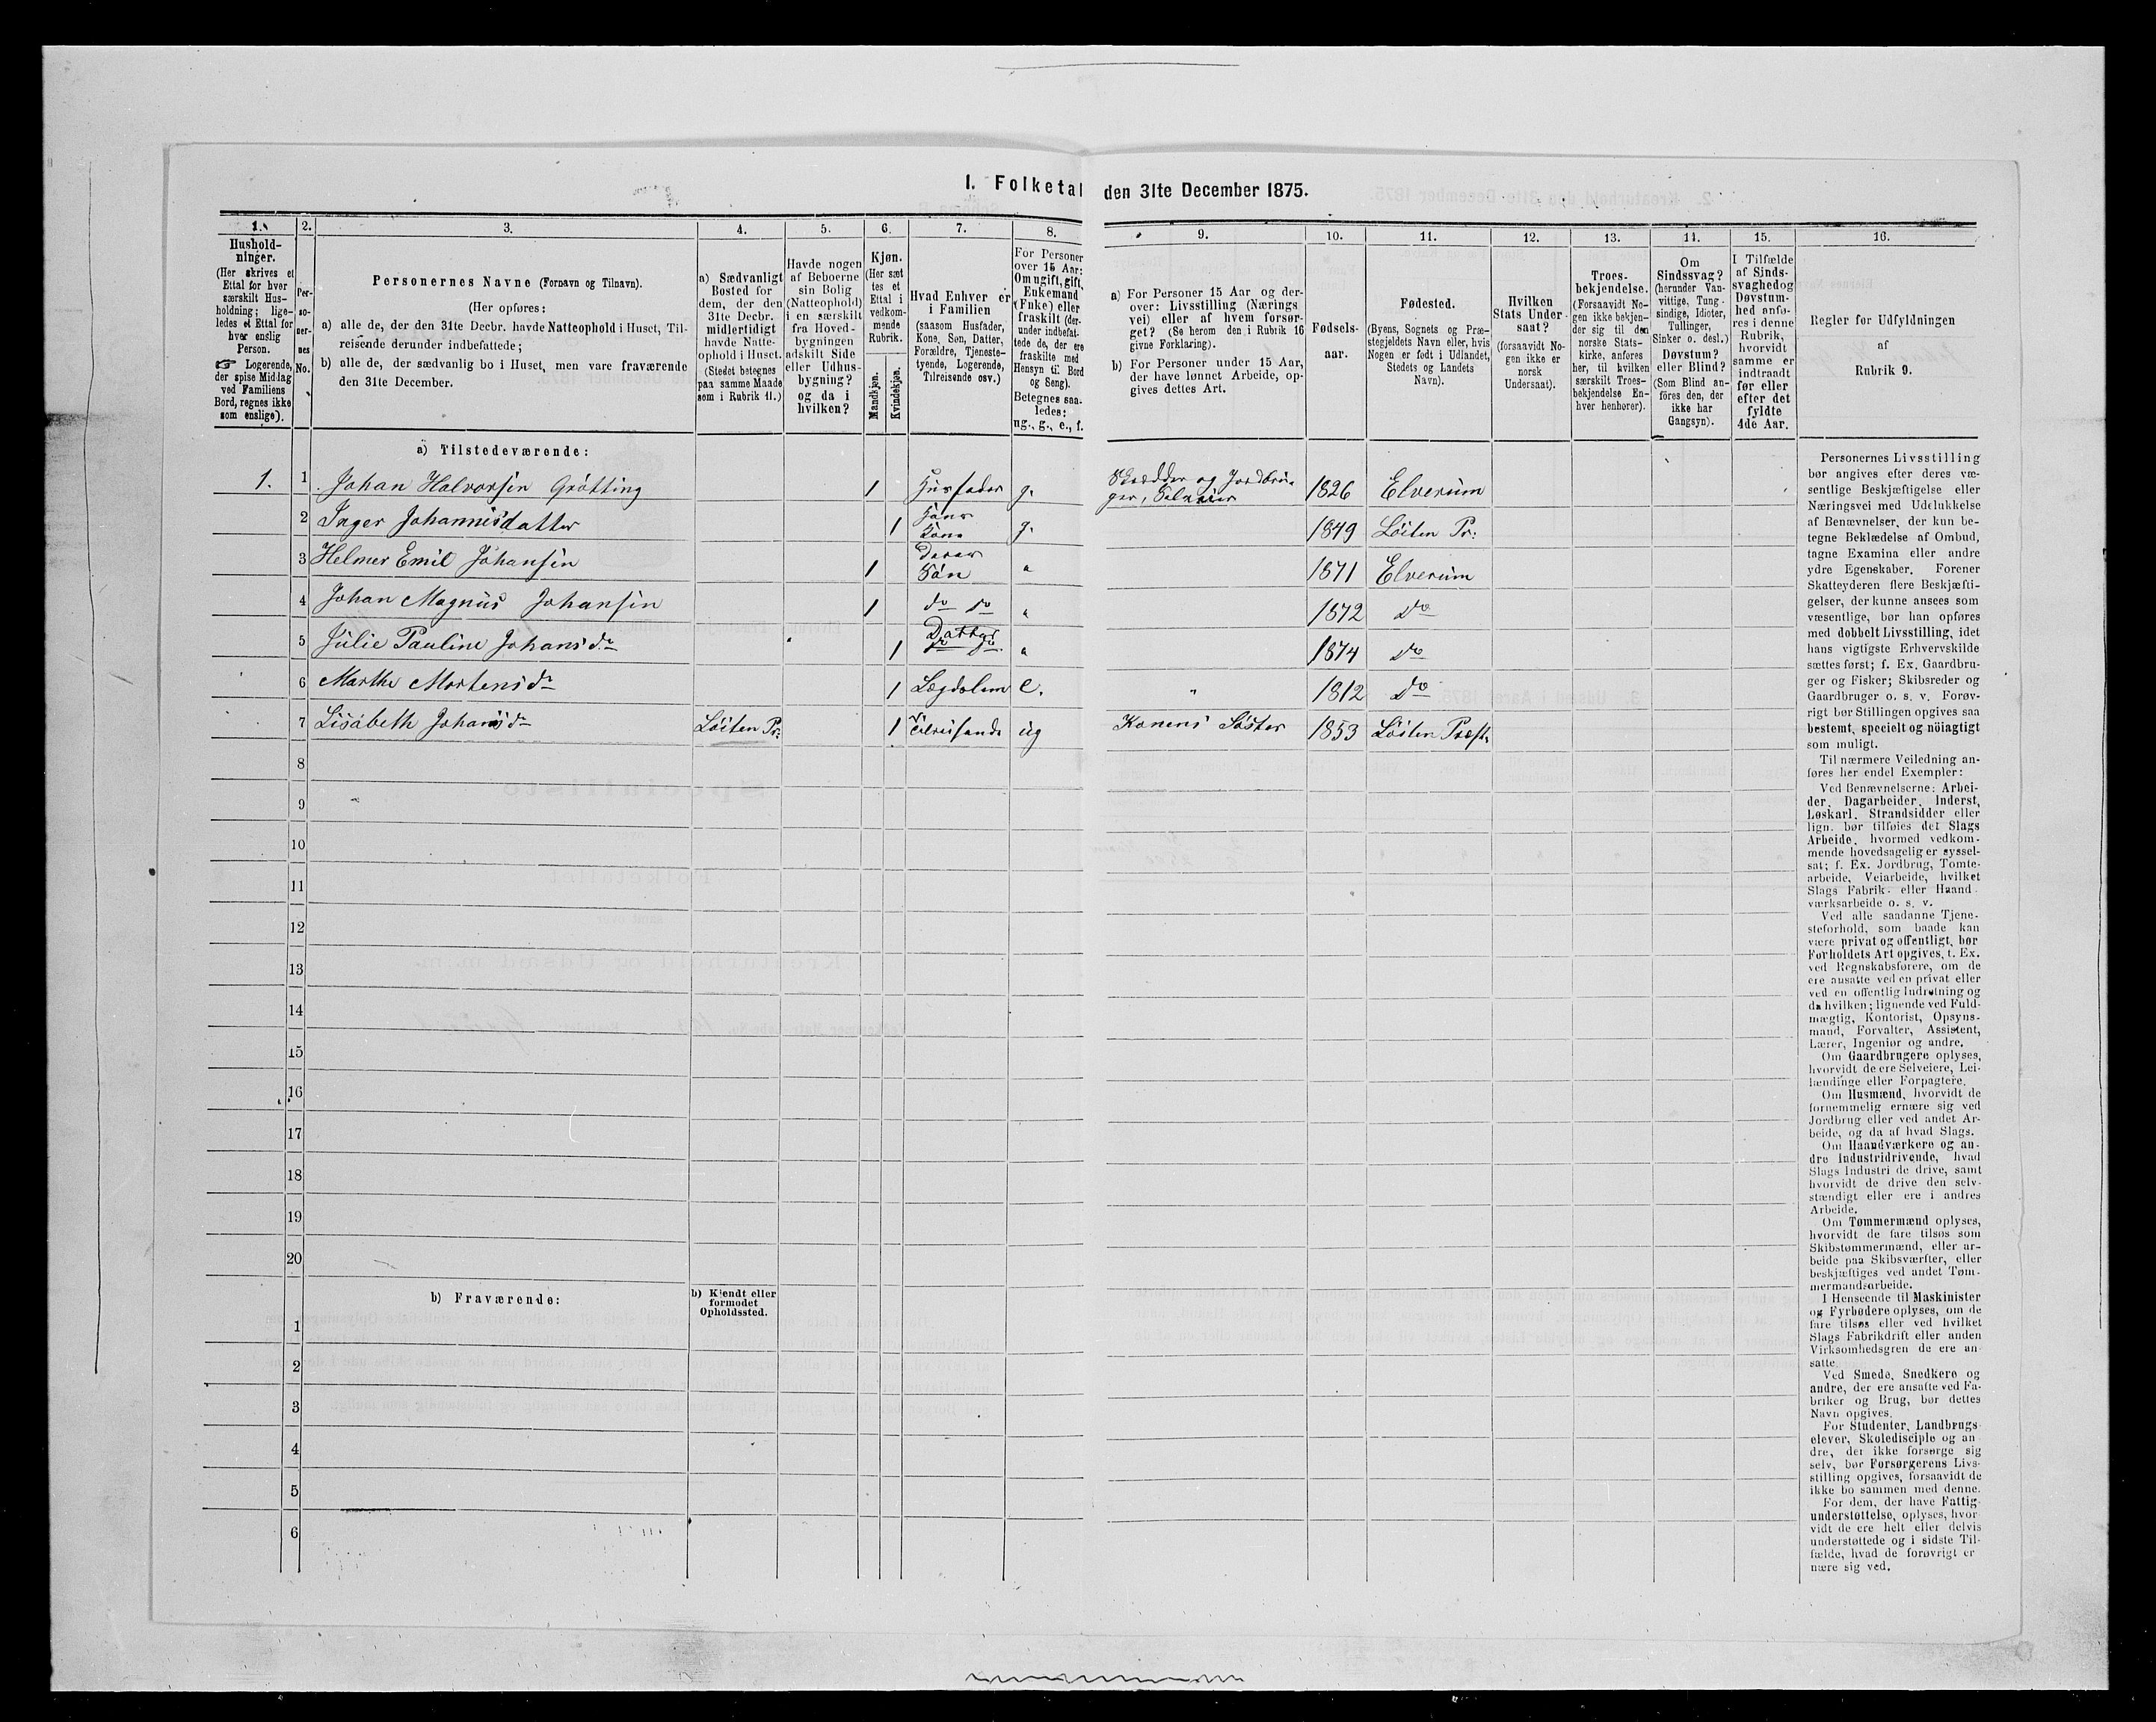 I. Folketal den 31te December 1875.
1.
Hushold-
ninger.
(Her skrives et
Ettal for hver
særskilt Hus-
holdning; lige-
ledes et Ettal for
hver enslig
Person.
☞ Logerende,
der spise Middag
ved Familiens
Bord, regnes ikke
som enslige).
2.
Per-
so-
ner-
nes
No.
3.
Personernes Navne (Fornavn og Tilnavn).
(Her opføres:
a) alle de, der den 31te Decbr. havde Natteophold i Huset, Til-
reisende derunder indbefattede;
b) alle de, der sædvanlig bo i Huset, men vare fraværende
den 31te December.
4.
a) Sædvanligt
Bosted for
dem, der den
31te Decbr.
midlertidigt
havde Natte-
ophold i Huset.
(Stedet betegnes
paa samme Maade
som i Rubrik 11.)
5.
Havde nogen
af Beboerne
sin Bolig
(Natteophold)
i en særskilt
fra Hoved-
bygningen
adskilt Side
eller Udhus-
bygning?
og da i
hvilken?
6.
Kjøn.
(Her sæt
tes et
Ettal i
vedkom-
mende
Rubrik.
Mandkjøn.
Kvindekjøn.
7.
Hvad Enhver er
i Familien
(saasom Husfader,
Kone, Søn, Datter,
Forældre, Tjeneste-
tyende, Logerende,
Tilreisende osv.)
8.
For Personer
over 15 Aar:
Om ugift, gift,
Enkemand
(Enke) eller
fraskilt (der-
under indbefat-
tede de, der ere
fraskilte med
Hensyn til Bord
og Seng).
Betegnes saa-
ledes:
ug., g., e., f.
9.
a) For Personer 15 Aar og der-
over: Livsstilling (Nærings
vei) eller af hvem forsør-
get? (Se herom den i Rubrik 16
givne Forklaring).
b) For Personer under 15 Aar,
der have lønnet Arbeide, op-
gives dettes Art.
10.
Fødsels-
aar.
11.
Fødested.
(Byens, Sognets og Præ-
stegjeldets Navn eller, hvis
Nogen er født i Udlandet,
Stedets og Landets
Navn).
12.
Hvilken
Stats Under-
saat?
(forsaavidt No-
gen ikke er
norsk
Undersaat).
13.
Troes-
bekjendelse.
(Forsaavidt No-
gen ikke bekjen-
der sig til den
norske Stats-
kirke, anføres
her, til hvilken
særskilt Troes-
bekjendelse En-
hver henhører).
14.
Om
Sindssvag?
(herunder Van-
vittige, Tung-
sindige, Idioter,
Tullinger,
Sinker o. desl.)
Døvstum?
eller Blind?
(Som Blind an-
føres den, der
ikke har
Gangsyn).
15.
I Tilfælde
af Sinds-
svaghed og
Døvstum-
hed anfø-
res i denne
Rubrik,
hvorvidt
samme er
indtraadt
før eller
efter det
fyldte
4de Aar.
16.
Regler for Udfyldningen
af
Rubrik 9.
a) Tilstedeværende:
1. 1 Johan Halvorsen Grøtting 1 Husfader g. Skrædder og Jordbru-
ger, Selveier 1826 Elverum
2 Inger Johannisdatter 1 Hans
Kone g. 1849 Løiten Pr:
3 Helmer Emil Johansen 1 Deres
Søn " 1871 Elverum
4 Johan Magnus Johansen 1 do do " 1872 do
5 Julie Pauline Johansdr 1 Datter
do do " 1874 do
6 Marthe Mortensdr 1 Lægdslem e. " 1812 do
7 Lisabeth Johansdr Løiten Pr: 1 Tilreisende ug Konens Søster 1853 Løiten Præst.
8
9
10
11
12
13
14
15
16
17
18
19
20
b) Fraværende:
b) Kjendt eller
formodet
Opholdssted.
1
2
3
4
5
6
Personernes Livsstilling
bør angives efter deres væ-
sentlige Beskjæftigelse eller
Næringsvei med Udelukkelse
af Benævnelser, der kun be-
tegne Beklædelse af Ombud,
tagne Examina eller andre
ydre Egenskaber. Forener
Skatteyderen flere Beskjæfti-
gelser, der kunne ansees som
væsentlige, bør han opføres
med dobbelt Livsstilling, idet
hans vigtigste Erhvervskilde
sættes først; f. Ex. Gaardbru-
ger og Fisker; Skibsreder og
Gaardbruger o. s. v. Forøv-
rigt bør Stillingen opgives saa
bestemt, specielt og nöiagtigt
som muligt.
Til nærmere Veiledning an-
føres her endel Exempler:
Ved Benævnelserne: Arbei-
der, Dagarbeider, Inderst,
Løskarl, Strandsidder eller
lign. bør tilføies det Slags
Arbeide, hvormed vedkom-
mende hovedsagelig er syssel-
sat; f. Ex. Jordbrug, Tomte-
arbeide, Veiarbeide, hvilket
Slags Fabrik- eller Haand-
værksarbeide o. s. v.
Ved alle saadanne Tjene-
steforhold, som baade kan
være privat og offentligt, bør
Forholdets Art opgives, t. Ex.
ved Regnskabsførere, om de
ere ansatte ved en privat eller
ved en offentlig Indretning og
da hvilken; lignende ved Fuld-
mægtig, Kontorist, Opsyns-
mand, Forvalter, Assistent,
Lærer, Ingeniør og andre.
Om Gaardbrugere oplyses,
hvorvidt de ere Selveiere, Lei-
lændinge eller Forpagtere.
Om Husmænd, hvorvidt de
fornemmelig ernære sig ved
Jordbrug eller ved andet Ar-
beide, og da af hvad Slags.
Om Haandværkere og an-
dre industridrivende, hvad
Slags Industri de drive, samt
hvorvidt de drive den selv-
stændigt eller ere i andres
Arbeide.
Om Tømmermænd oplyses,
hvorvidt de fare tilsøs som
Skibstømmermænd, eller ar-
beide paa Skibsværfter, eller
beskjæftiges ved andet Tøm-
mermandsarbeide.
I Henseende til Maskinister
og Fyrbødere oplyses, om de
fare tilsøs eller ved hvilket
Slags Fabrikdrift eller anden
Virksomhedsgren de ere an-
satte.
Ved Smede, Snedkere og
andre, der ere ansatte ved Fa-
briker og Brug, bør dettes
Navn opgives.
For Studenter, Landbrugs-
elever, Skoledisciple og an-
dre, der ikke forsørge sig
selv, bør Forsørgerens Livs-
stilling opgives, forsaavidt de
ikke bo sammen med denne.
For dem, der have Fattig-
understøttelse, oplyses, hvor-
vidt de ere helt eller delvis
understøttede og i sidste Til-
fælde, hvad de forøvrigt er
nære sig ved.